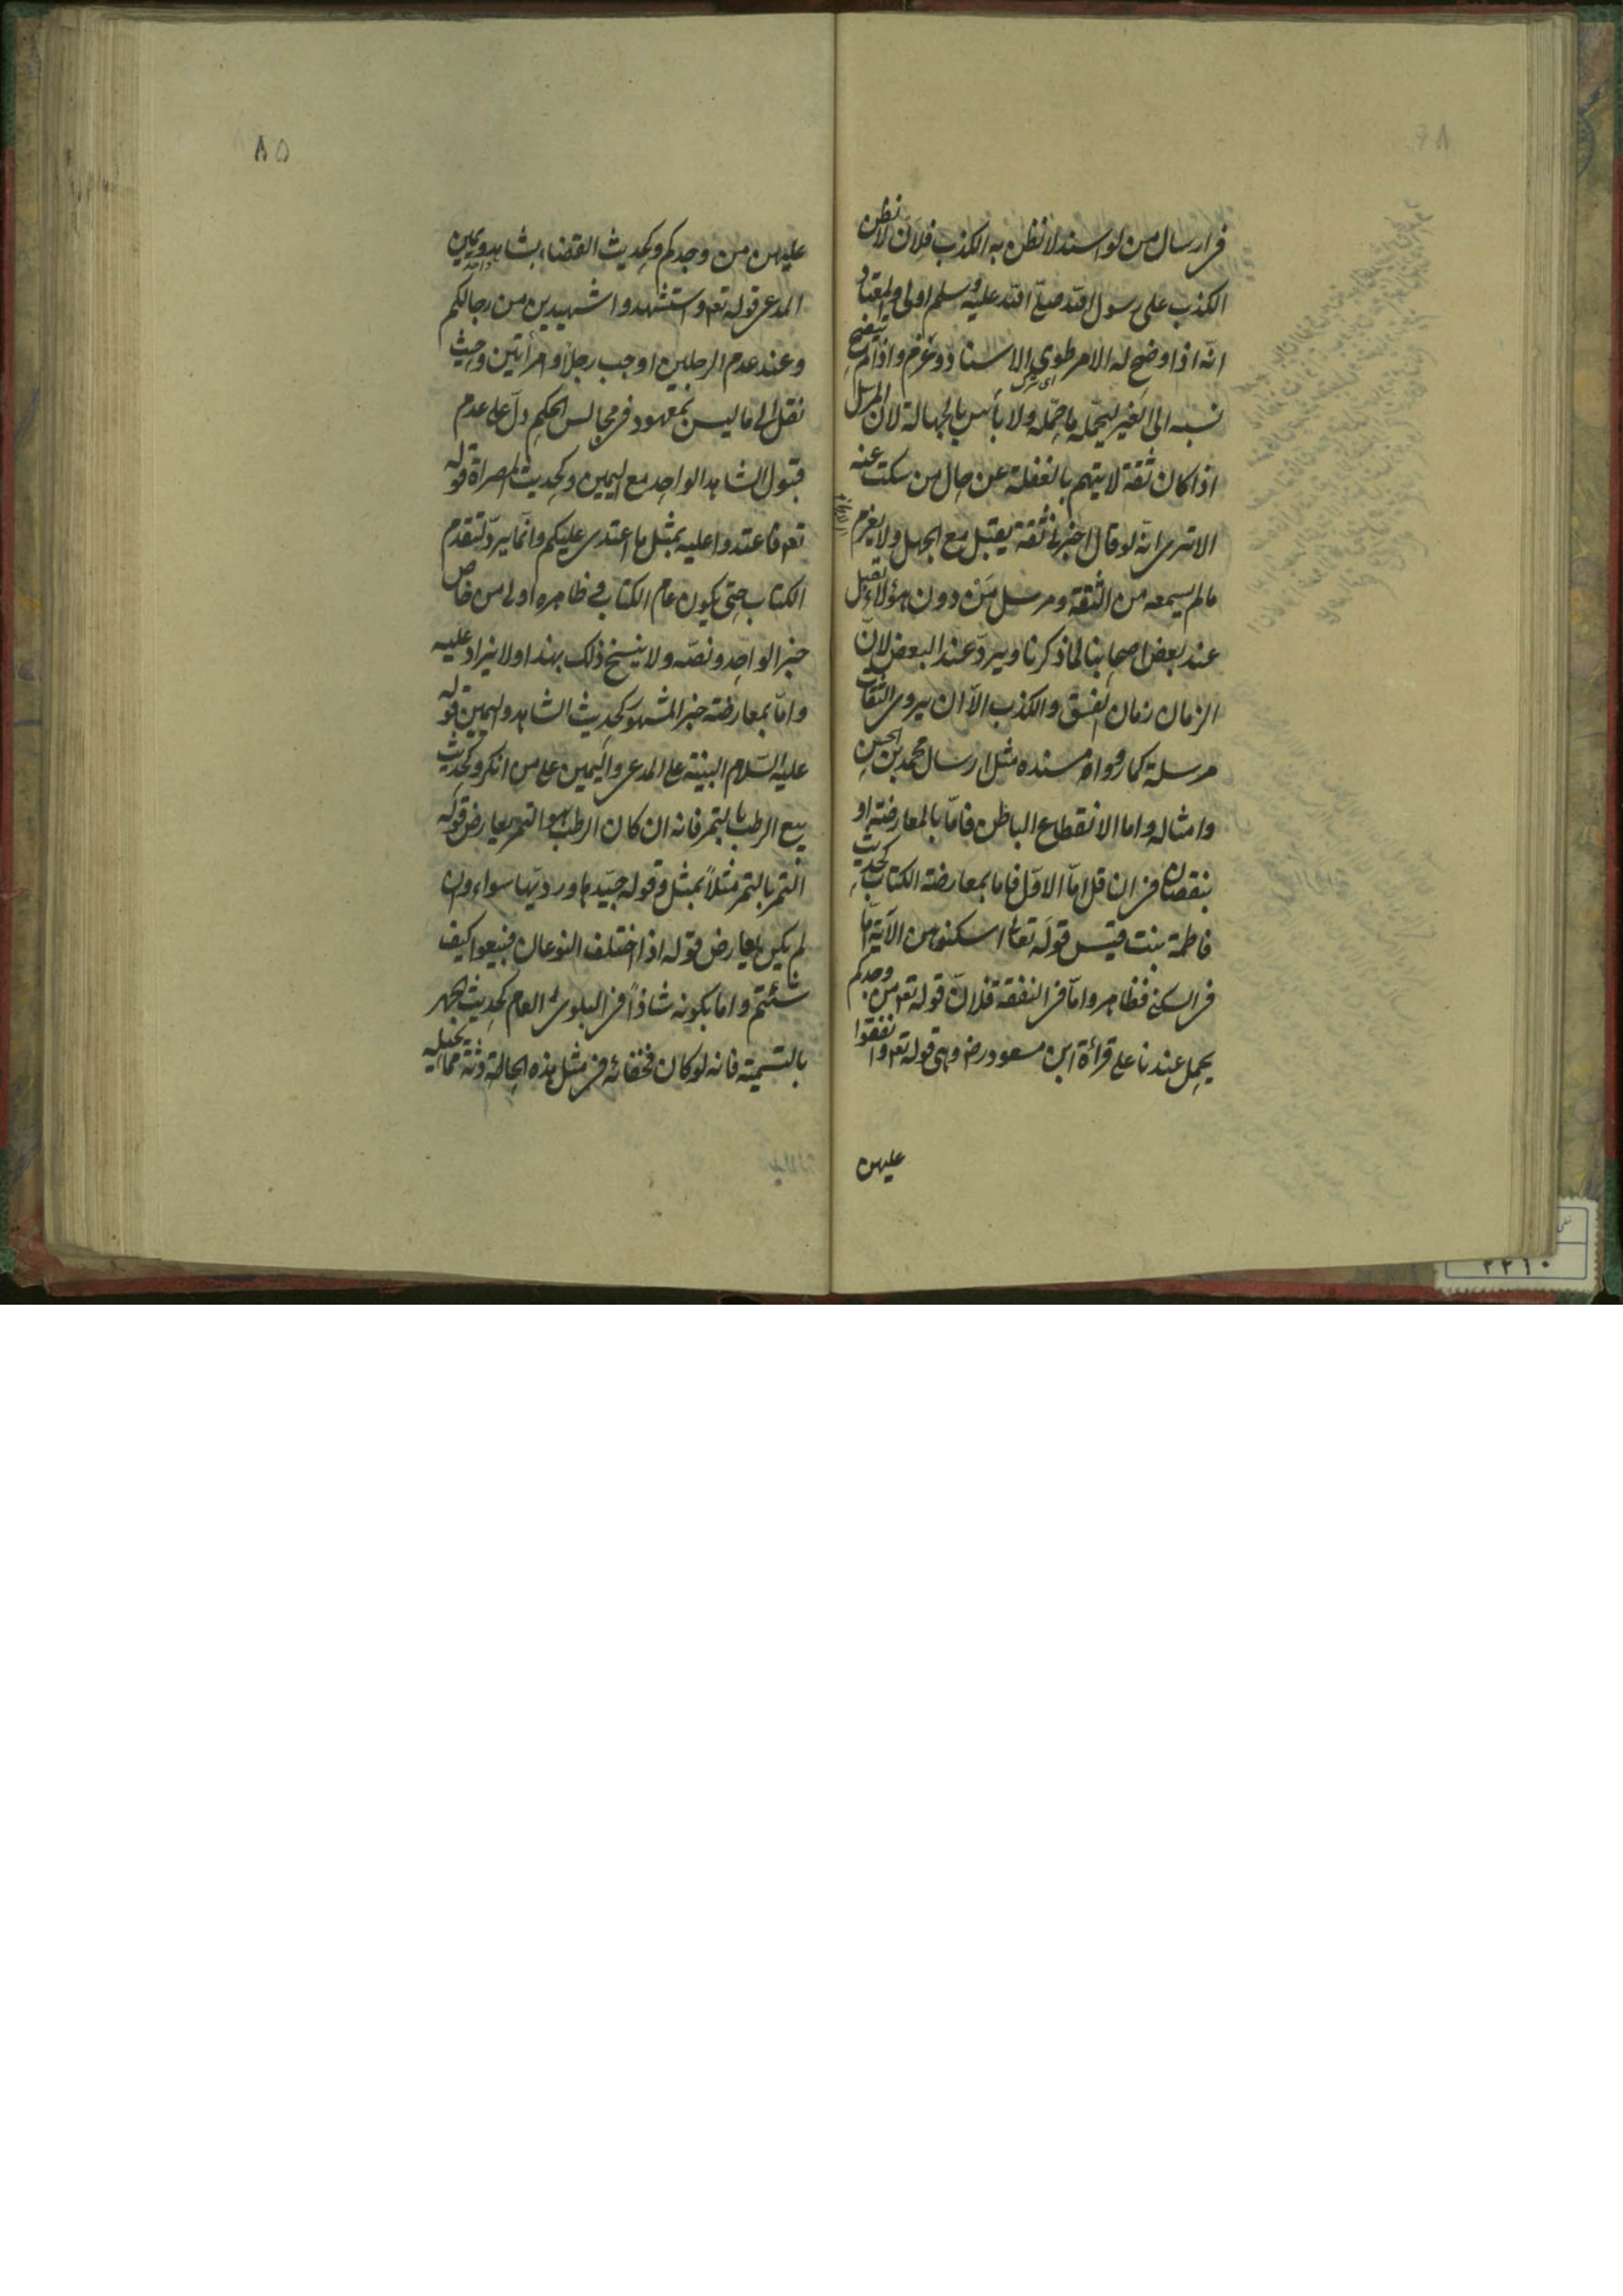 فى ارسال من لو اسند لا نظن به الكذب فلان لا نظن
الكذب على رسول الله صلى الله عليه وسلم اولى والمعتاد
انه اذا وضح له الامر طوى الاسناد وعزم واذا لم يتضح
نسبه الى الغير ليحمله ما حمله ولا بأس بالجهالة لان المرسل
اذا كان ثقة لا يتهم بالغفلة عن حال من سكت عنه
الا ترى انه لو قال اخبرنى ثقة يقبل مع الجهل ولا يعزم
ما لم يسمعه من الثقة ومرسل من دون هؤلاء يقبل
عند بعض اصحابنا لما ذكرنا ويرد عند البعض لان
الزمان زمان الفسق والكذب الا ان يروى الثقات
مرسله كما رووا مسنده مثل ارسال محمد بن الحسن
وامثاله واما الانقطاع الباطن فاما بالمعارضة او
بنقصان فى الناقل اما الاول فاما بمعارضة الكتاب كحديث
فاطمة بنت قيس قوله تعالى اسكنوهن الآية اما
فى السكنى فظاهر واما فى النفقة فلان قوله تع من وجدكم
يحمل عندنا على قرائة ابن مسعود رض وهى قوله تع وانفقوا
عليهن
٨٥
عليهن من وجدكم وكحديث القضاء بشاهد ويمين
المدعى قوله تع واستشهدوا شهيدين من رجالكم
وعند عدم الرجلين اوجب رجلا وامرأتين وحيث
نقل الى ما ليس بمعهود فى مجالس الحكم دل على عدم
قبول الشاهد الواحد مع اليمين وكحديث المصراة قوله
تع فاعتدوا عليه بمثل ما اعتدى عليكم وانما يرد لتقدم
الكتاب حتى يكون عام الكتاب فى ظاهره اولى من خاص
خبر الواحد ونصه ولا ينسخ ذلك بهذا ولا يزاد عليه
واما بمعارضة خبر المشهور كحديث الشاهد واليمين قوله
عليه السلام البينة على المدعى واليمين على من انكر وكحديث
بيع الرطب بالتمر فانه ان كان الرطب هو التمر يعارض قوله
التمر بالتمر مثلا بمثل وقوله جيدها ورديها سواء وان
لم يكن يعارض قوله اذا اختلف النوعان فبيعوا كيف
شئتم واما بكونه شاذا فى البلوى العام كحديث الجهر
بالتسمية فانه لو كان فخفائه فى مثل هذه الحادثة مما يحيله